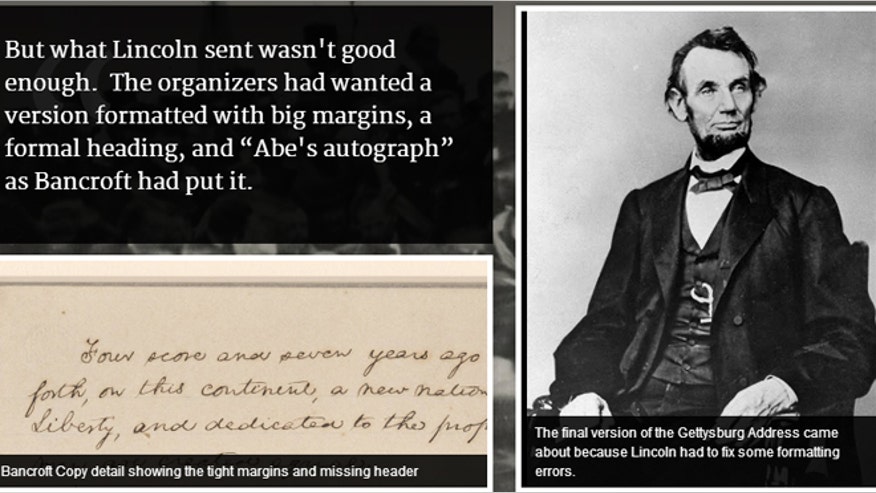 But what Lincoln sent wasn't good
enough.  The organizers had wanted a
version formatted with big margins, a
formal heading, and “Abe's autograph”
as Bancroft had put it.
Four score and seven years ago
forth, on this continent, a new nation
Liberty, and dedicated to the prop
Bancroft Copy detail showing the tight margins and missing header
The final version of the Gettysburg Address came
about because Lincoln had to fix some formatting
errors.